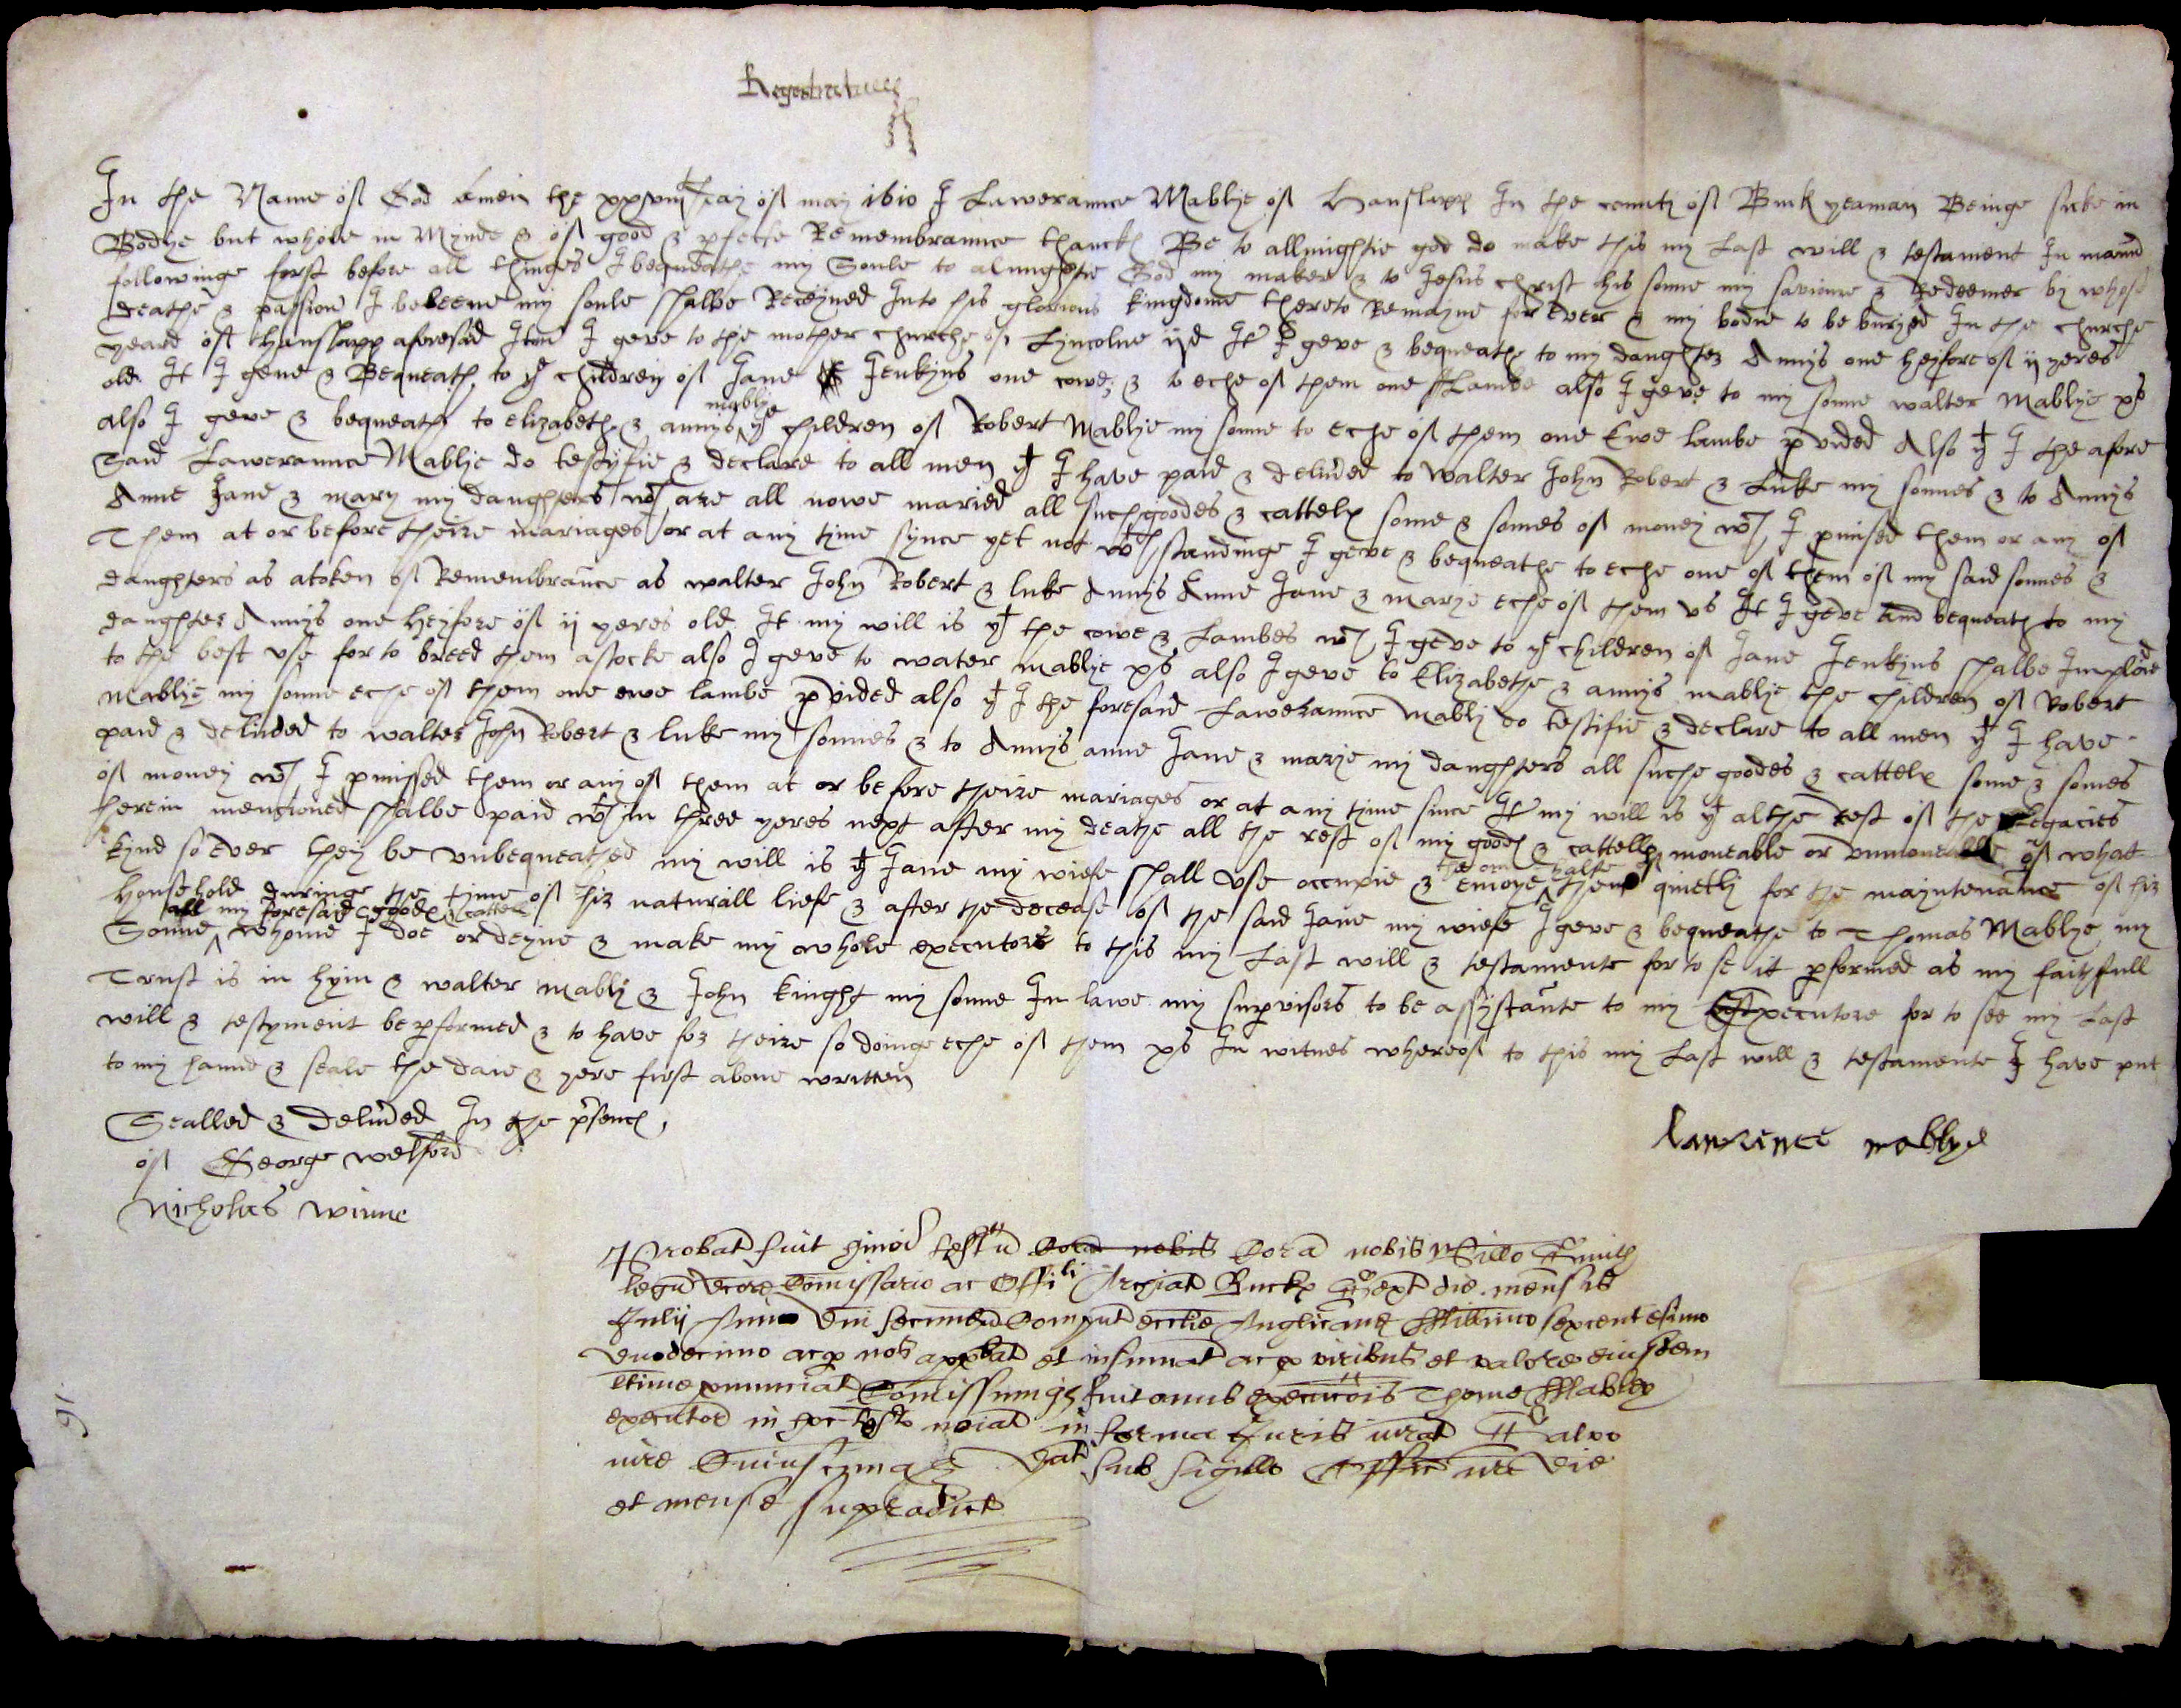 Registratur
In the Name of God Amen the xxviijth day of may 1610 I Lawerannce Mablye of Hanslapp In the county of Buck yeaman Beinge sicke in
Bodye but whole in Mynde & of good & pfecte Remembrannce thanckes Be to allmightie god do make this my Last will & testament In mannr
followinge first before all thinges I bequeathe my Soule to almightie God my maker & to Jesus christ his sonne my savioure & Redeemer by whose
deathe & passion I beleeve my soule shalbe Receyved Into his glorious kingdome there to Remayne for Ever & my bodie to be buryed In the churche
yeard of Hanslapp aforesaid Itm I geve to the mother churche of Lyncolne ijd It I geve & bequeathe to my daughter Annys one heyfore of ij yeres
old It I geve & Bequeath to ye children of Jane Jenkyns one cowe & to eche of them one Lambe also I geve to my sonne walter Mablye xs
also I geve & bequeath to elizabeth & annys mablye ye children of Robert Mablye my sonne to Eche of them one Ewe lambe pvided Also yt I the afore
Said Lawerannce Mablye do testyfie & declare to all men yt I have paid & delived to walter John Robert & Luke my sonnes & to Annys
Anne Jane & mary my daughters wch are all nowe maried all such goodes & cattells some & somes of money wch I pmised them or any of
Them at or before theire mariages or at any tyme synce yet not wthstandinge I geve & bequeathe to eche one of them of my said sonnes &
daughters as a token of Remembrance as walter John Robert & luke Annys Anne Jane & marye eche of them vs It I geve and bequeath to my
daughter Annys one heyfore of ij yeres old It my will is yt the cowe & Lambes wch I geve to ye children of Jane Jenkyns shalbe Imployd
to the best use for to breed them a stocke also I geve to water mablye xs also I geve to Elizabethe & annys mablye the children of Robert
mablye my sonne eche of them one ewe lambe pvided also yt I the foresaid Lawerannce mably do testifie & declare to all men yt I have
paid & delivded to walter John Robert & luke my sonnes & to Annys anne Jane & marye my daughters all suche goodes & cattells some & somes
of money wch I pmissed them or any of them at or before theire mariages or at any time since It my will is yt al the rest of the Legacies
herein mencioned shalbe paid wthin three yeres next after my deathe all the rest of my goods & cattells moveable or unmoveable of what
kynd so ever they be unbequeathed my will is yt Jane my wiefe shall use occupie & enioye the one halfe of them quietly for the mayntenance of hir
household duringe the tyme of hir naturall liefe & after the decease of the said Jane my wiefe I geve & bequeathe to Thomas Mablye my
Sonne all my foresaid goodes & cattells whome I doe ordeyne & make my whole executore to this my Last will & testamente for to se it pformed as my faithfull
Trust is in hym & walter mably & John kinght my sonne In lawe my supvisors to be assystante to my Executore for to see my Last
will & testyment be pformed & to have for theire so doinge eche of them xs In witnes whereof to this my Last will & testamente I have put
to my hannd & seale the daie & yere first above written
Sealled & Delived In the psence
of George welford
Nicholas winne
Lawrence mablye
Probat fuit hmoi testm Cora nobis Cora nobis Willo Smith
legu Comissario ac Offili Archiat Buck Sext die mensis
Julij Anno Dni secundu Comput ecclie Anglicane Millimo sexcentesimo
duodecimo ac p nos approbat et insinuat ac p viribus et valore eiusdem
ltime pnunciat Comissumqz fuit onus execucois Thome Mabley
executor in hoc testo noiat in forma Juris iurat Salvo
iure Cuiuscunqz Dat sub sigillo Officii nri Die
et mense supradict
91